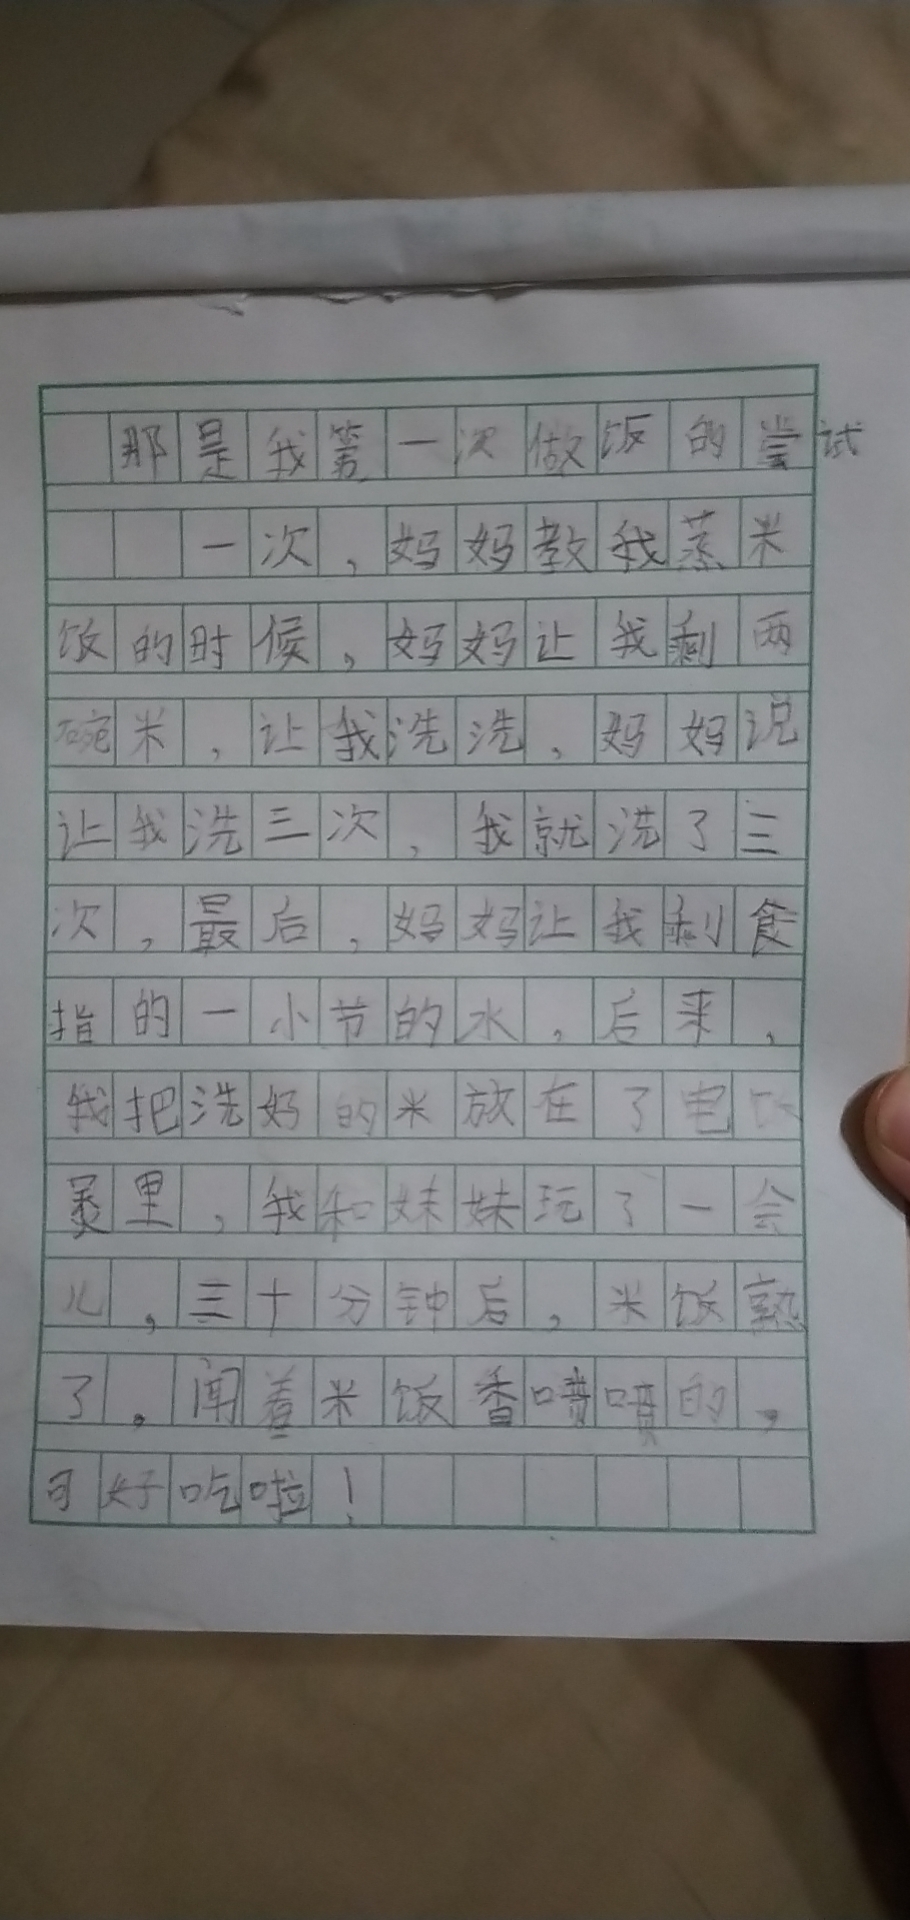 那是我第一次做饭的尝试
一次,妈妈教我蒸米
饭的时候,妈妈让我剩两
碗米,让我洗洗,妈妈说
让我洗三次,我就洗了三
次,最后,妈妈让我剩食
指的一小节的水,后来,
我把洗好的米放在了电饭
里,我和妹妹玩了一会
儿,三十分钟后,米饭熟
了。闻着米饭香喷喷的,
可好吃啦!